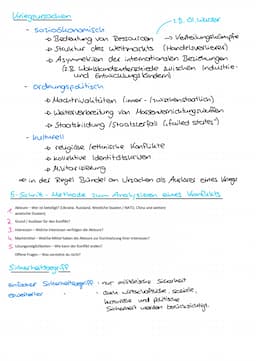 Kriegsursachen
- sozioökonomisch
→ Bedeutung von Ressourcen → Verteilungskämpfe
z.B. Öl, Wasser
→ Struktur des Weltmarkts (Handelsbarrieren)
→ Asymmetrien der internationalen Beziehungen
(z.B. Wohlstandsunterschiede zwischen Industrie-
und Entwicklungsländern)
- ordnungspolitisch
→ Machtrivalitäten (inner-/zwischenstaatlich)
→ Weiterverbreitung von Massenvernichtungswaffen
→ Staatsbildung / Staatszerfall („failed states")
- kulturell
→ religiöse / ethnische Konflikte
→ kollektive Identitätskrisen
→ Militarisierung
⇒ in der Regel Bündel an Ursachen als Auslöser eines Kriegs
5-Schritt-Methode zum Analysieren eines Konflikts
1 Akteure – Wer ist beteiligt? (Ukraine, Russland, Westliche Staaten / NATO, China und weitere
asiatische Staaten)
2 Grund / Auslöser für den Konflikt?
3 Interessen – Welche Interessen verfolgen die Akteure?
4 Machtmittel – Welche Mittel haben die Akteure zur Durchsetzung ihrer Interessen?
5 Lösungsmöglichkeiten – Wie kann der Konflikt enden?
Offene Fragen – Was verstehst du nicht?
Sicherheitsbegriff
einfacher Sicherheitsbegriff - nur militärische Sicherheit
erweiterter - auch wirtschaftliche, soziale,
und politische
Sicherheit werden berücksichtigt